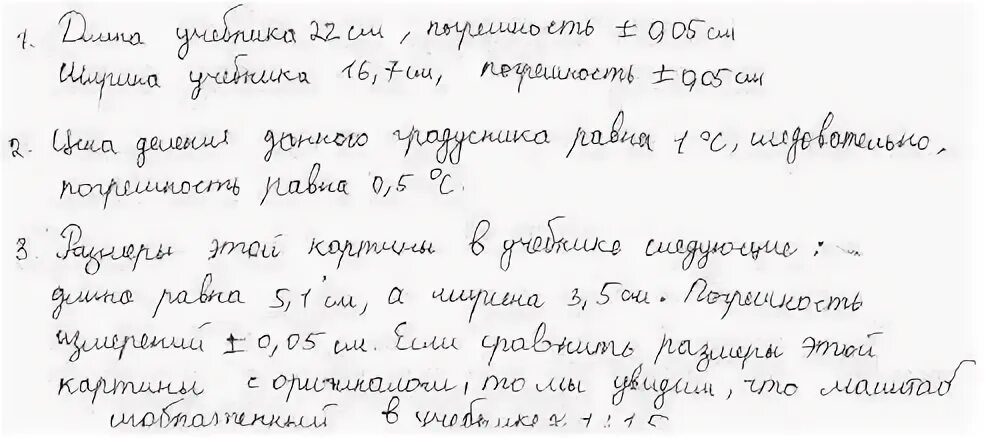 1. Длина учебника 22 см, погрешность ± 0,05 см
Ширина учебника 16,7 см, погрешность ± 0,05 см
2. Цена деления данного градусника равна 1 °С, следовательно,
погрешность равна 0,5 °С.
3. Размеры этой картины в учебнике следующие:
длина равна 5,1 см, а ширина 3,5 см. Погрешность
измерений ± 0,05 см. Если сравнить размеры этой
картины с оригиналом, то мы увидим, что маштаб
в учебнике 1:15